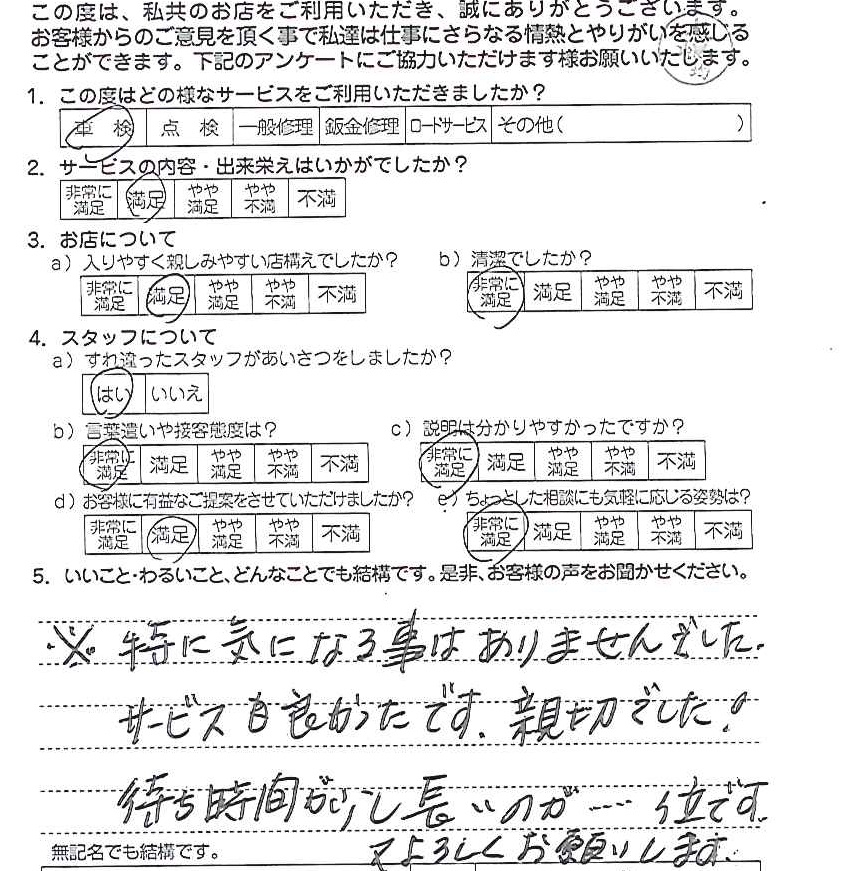 この度は、私共のお店をご利用いただき、誠にありがとうございます。
お客様からのご意見を頂く事で私達は仕事にさらなる情熱とやりがいを感じる
ことができます。下記のアンケートにご協力いただけます様お願いいたします。
1. この度はどの様なサービスをご利用いただきましたか?
車 検 点 検 一般修理 鈑金修理 ロードサービス その他( )
2. サービスの内容・出来栄えはいかがでしたか?
非常に満足 満足 やや満足 やや不満 不満
3. お店について
a) 入りやすく親しみやすい店構えでしたか? b) 清潔でしたか?
非常に満足 満足 やや満足 やや不満 不満 非常に満足 満足 やや満足 やや不満 不満
4. スタッフについて
a) すれ違ったスタッフがあいさつをしましたか?
はい いいえ
b) 言葉遣いや接客態度は? c) 説明は分かりやすかったですか?
非常に満足 満足 やや満足 やや不満 不満 非常に満足 満足 やや満足 やや不満 不満
d) お客様に有益なご提案をさせていただけましたか? e) ちょっとした相談にも気軽に応じる姿勢は?
非常に満足 満足 やや満足 やや不満 不満 非常に満足 満足 やや満足 やや不満 不満
5. いいこと・わるいこと、どんなことでも結構です。是非、お客様の声をお聞かせください。
※ 特に気になる事はありませんでした。
サービスも良かったです。親切でした!
待ち時間が少し長いのが…… 位です。
無記名でも結構です。 又よろしくお願いします。